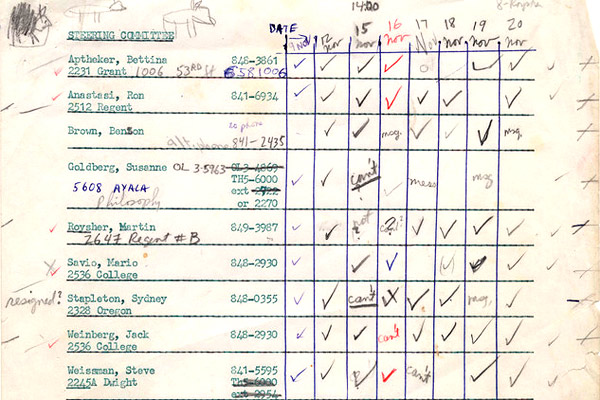 14:00
8-Roysher
DATE
STEERING COMMITTEE
9 Nov 12 nov 15 nov 16 nov 17 Nov 18 nov. 19 nov 20 nov
Aptheker, Bettina 848-3861
2231 Grant 1006 53RD St 6581006
Anastasi, Ron 841-6934
2512 Regent
Brown, Benson msg. msg.
841-2435
Goldberg, Susanne OL 3-5963 OL3-4869 can't mess msg
5608 AYALA TH5-6000
Philosophy ext 2722
or 2270
Roysher, Martin 849-3987 not ? ?
2647 Regent #B
Savio, Mario 848-2930
2536 College
resigned? Stapleton, Sydney 848-0355 can't msg.
2328 Oregon
Weinberg, Jack 848-2930 can't
2536 College
Weissman, Steve 841-5595 can't
2245A Dwight Th5-6000
ext 2954